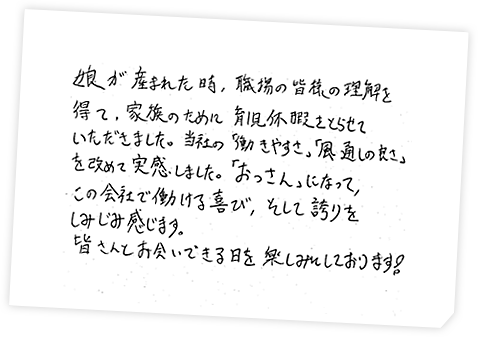 娘が産まれた時、職場の皆様の理解を
得て、家族のために育児休暇をとらせて
いただきました。当社の「働きやすさ」「風通しの良さ」
を改めて実感しました。「おっさん」になって、
この会社で働ける喜び、そして誇りを
しみじみ感じます。
皆さんとお会いできる日を楽しみにしております!